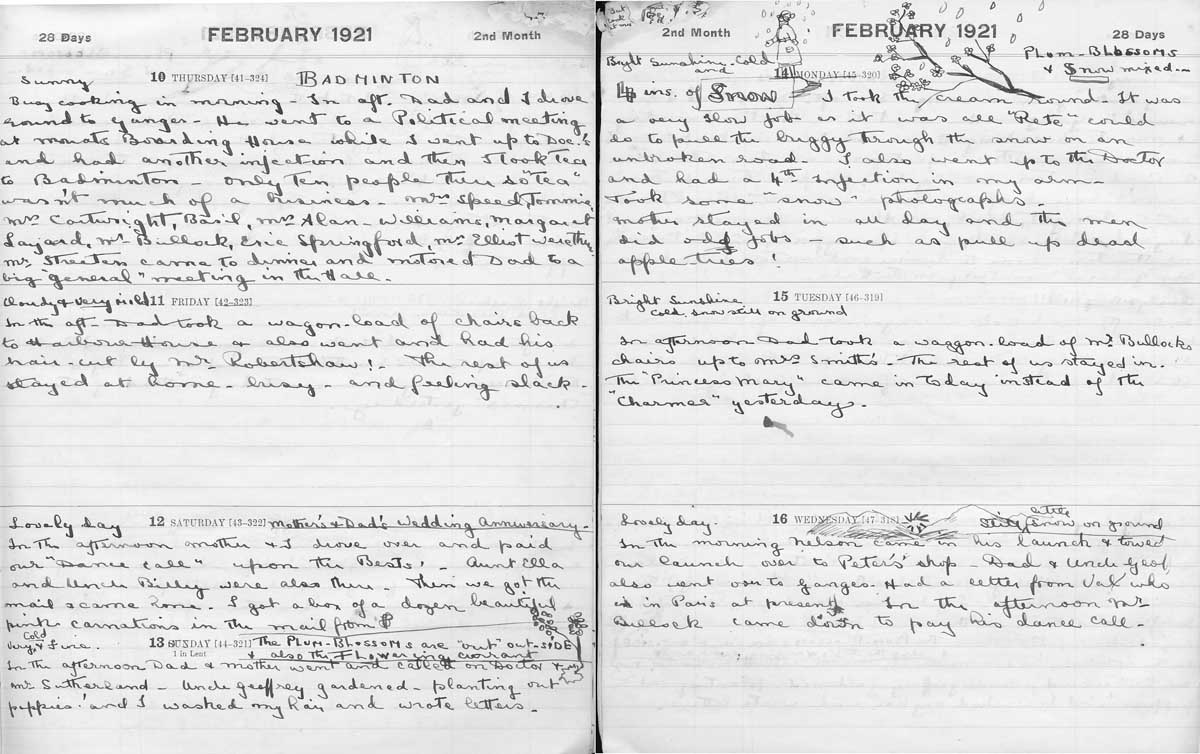 28 Days FEBRUARY 1921 2nd Month
Sunny 10 THURSDAY [41-324] BADMINTON
Busy cooking in morning - In aft. Dad and I drove
round to Ganges - He went to a Political meeting
at Mouats Boarding House while I went up to Doc.'s
and had another injection and then I took tea
to Badminton - only ten people there so "tea"
wasn't much of a business - Mrs Speed, Tommie,
Mrs Cartwright, Basil, Mrs Alan - Williams, Margaret
Layard, Mr Bullock, Eric Springford, Mr Elliot were there
Mr Streeten came to dinner and motored Dad to a
big "general" meeting in the Hall.
Cloudy & very mild 11 FRIDAY [42-323]
In the aft - Dad took a wagon-load of chairs back
to Harbour House & also went and had his
hair-cut by Mr Robertshaw! - The rest of us
stayed at home - busy - and feeling slack -
Lovely day 12 SATURDAY [43-322] Mother's & Dad's Wedding Anniversary -
In the afternoon mother & I drove over and paid
our "Dance call" upon the Bests! - Aunt Ella
and Uncle Billy were also there - Then we got the
mail & came home. I got a box of a dozen beautiful
pink carnations in the mail from
Cold
& Fine. 13 SUNDAY [44-321] The PLUM-BLOSSOMS are "out" OUT-SIDE
1 in Lent & also the FLowering currant
In the afternoon Dad & mother went and called on Doctor &
Mrs Sutherland - Uncle Geoffrey gardened - planting out
poppies - and I washed my hair and wrote letters -
2nd Month FEBRUARY 1921 28 Days
PLUM-BLOSSOMS
& Snow mixed -
Bright Sunshine - Cold
and 14 MONDAY [45-320]
4 ins. of Snow I took the cream round - It was
a very slow job as it was all "Pete" could
do to pull the buggy through the snow on an
unbroken road - I also went up to the Doctor
and had a 4th injection in my arm -
Took some "snow" photographs -
Mother stayed in all day and the men
did odd jobs - such as pull up dead
apple trees!
Bright Sunshine 15 TUESDAY [46-319]
Cold snow still on ground
In afternoon Dad took a waggon-load of Mr Bullocks
chairs up to Mrs Smith's - The rest of us stayed in.
The "Princess Mary" came in today instead of the
"Charmer" yesterday.
Lovely day. 16 WEDNESDAY [47-318] little
snow on ground
In the morning Nelson came in his launch & towed
our launch over to Peter's shop - Dad & Uncle Geof,
also went over to Ganges. Had a letter from Val who
is in Paris at present - In the afternoon Mr
Bullock came down to pay his dance call -